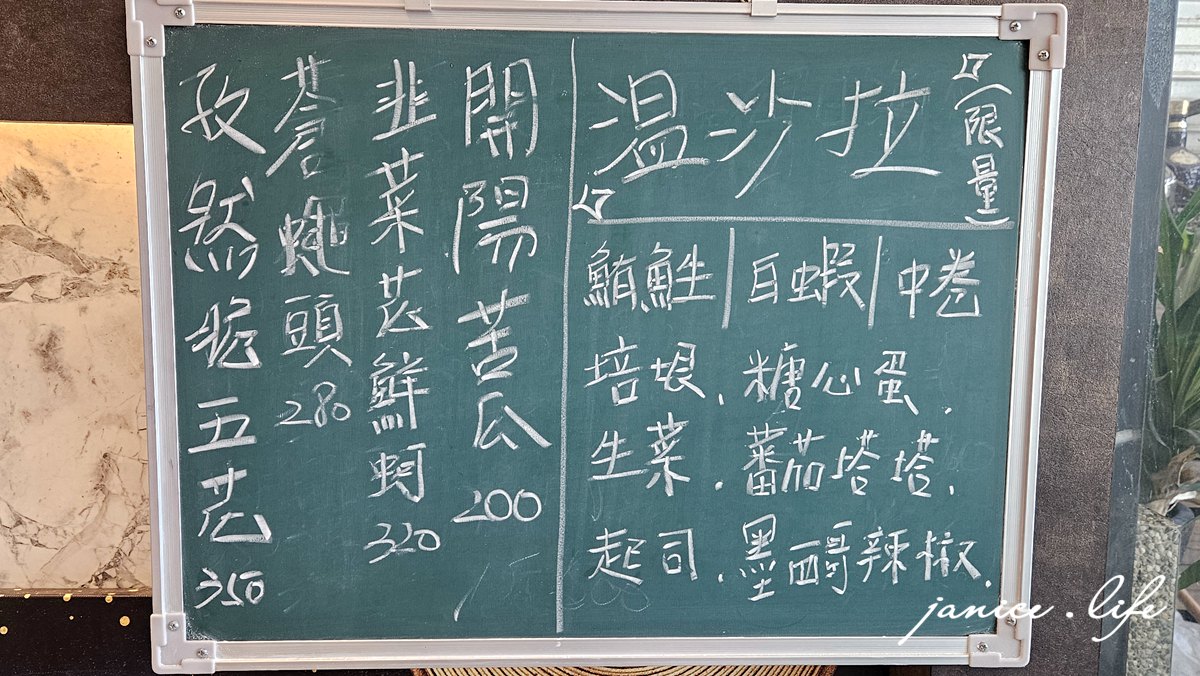 温沙拉(限量)
鮪鮏|白蝦|中卷
培垠.糖心蛋.
生菜.蕃茄塔塔.
起司.墨西哥辣椒.
開陽苦瓜 200
韭菜花鮮蚵 320
蒼蠅頭 280
孜然五花 350
janice.life